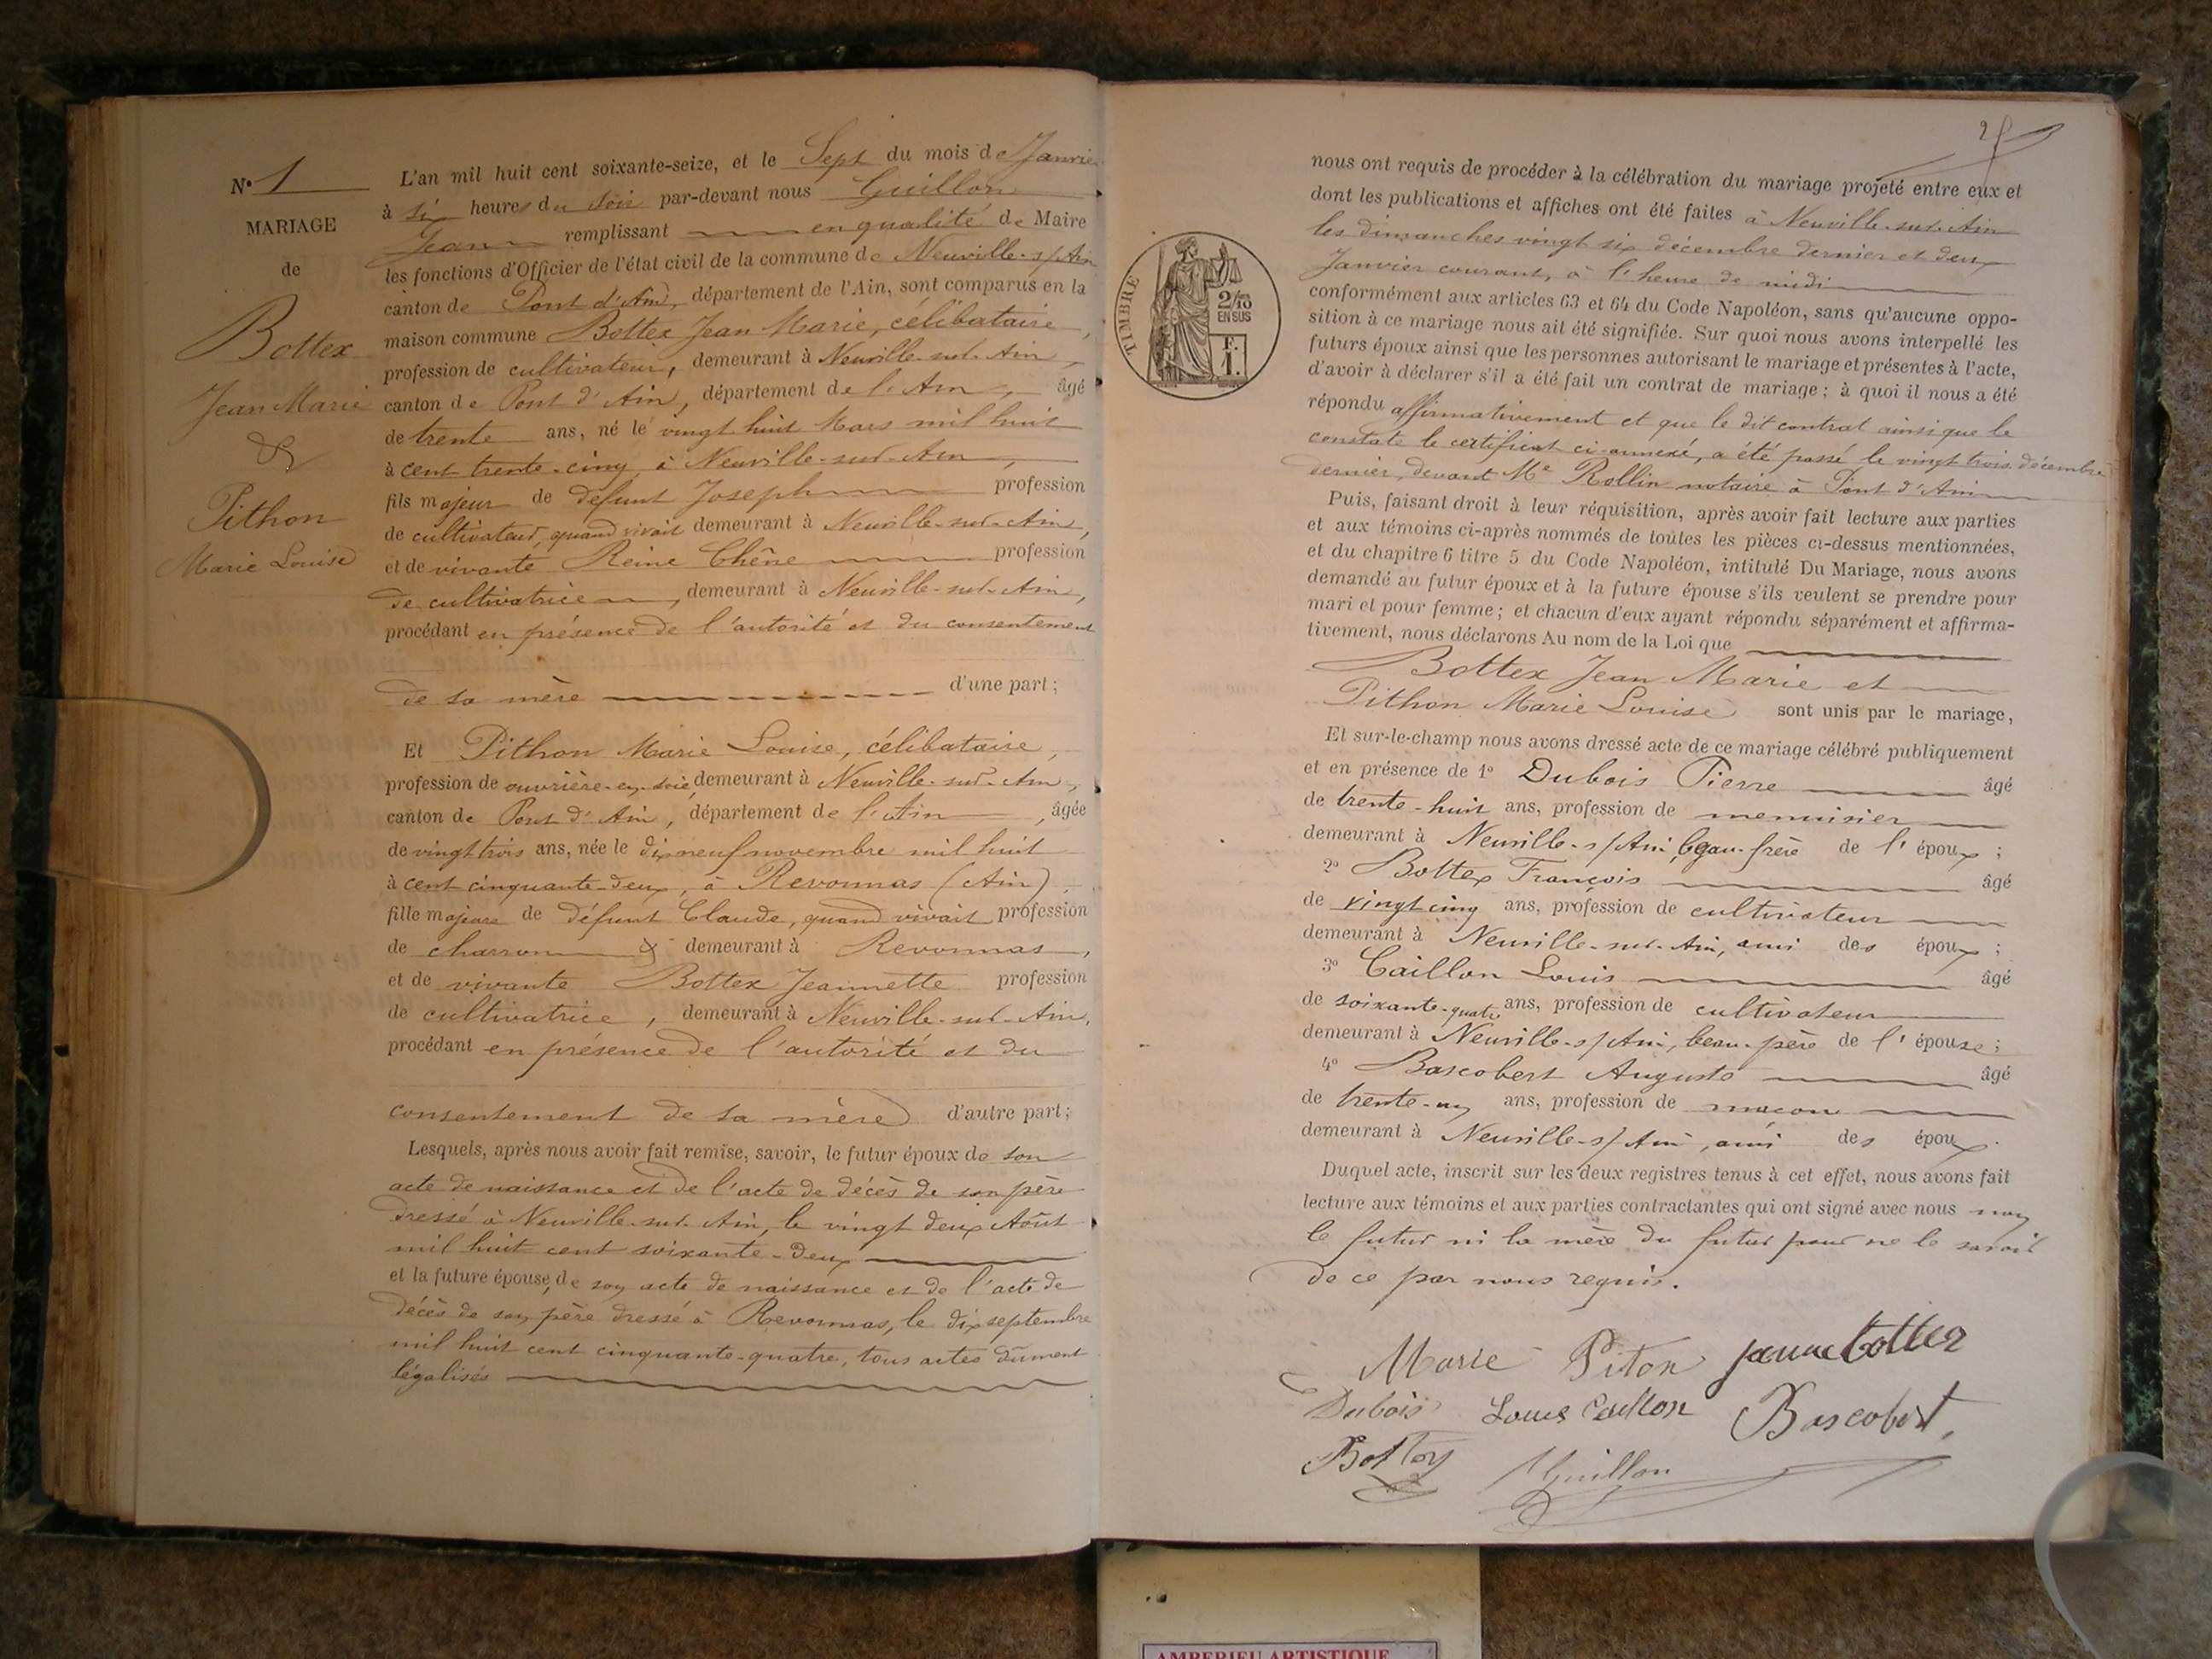 N° 1
MARIAGE
de
Bottex
Jean Marie
&
Pithon
Marie Louise
L'an mil huit cent soixante-seize, et le Sept du mois de Janvier
à six heures du soir par-devant nous Guillon
Jean remplissant en qualité de Maire
les fonctions d'Officier de l'état civil de la commune de Neuville-s/Ain
canton de Pont d'Ain, département de l'Ain, sont comparus en la
maison commune Bottex Jean Marie, célibataire,
profession de cultivateur, demeurant à Neuville-sur-Ain,
canton de Pont d'Ain, département de l'Ain, âgé
de trente ans, né le vingt huit Mars mil huit
à cent trente-cinq à Neuville-sur-Ain,
fils majeur de défunt Joseph profession
de cultivateur, quand vivait demeurant à Neuville-sur-Ain,
et de vivante Reine Chêne profession
de cultivatrice, demeurant à Neuville-sur-Ain,
procédant en présence de l'autorité et du consentement
de sa mère d'une part;
Et Pithon Marie Louise, célibataire,
profession de ouvrière-en-soie, demeurant à Neuville-sur-Ain,
canton de Pont d'Ain, département de l'Ain, âgée
de vingt trois ans, née le dix neuf novembre mil huit
à cent cinquante-deux, à Revonnas (Ain),
fille majeure de défunt Claude, quand vivait profession
de charron & demeurant à Revonnas,
et de vivante Bottex Jeannette profession
de cultivatrice, demeurant à Neuville-sur-Ain,
procédant en présence de l'autorité et du
consentement de sa mère d'autre part;
Lesquels, après nous avoir fait remise, savoir, le futur époux de son
acte de naissance et de l'acte de décès de son père
dressé à Neuville-sur-Ain, le vingt deux Août
mil huit cent soixante-deux
et la future épouse, de son acte de naissance et de l'acte de
décès de son père dressé à Revonnas, le dix septembre
mil huit cent cinquante-quatre, tous actes dûment
légalisés
TIMBRE
2/10
EN SUS
F.
1.
nous ont requis de procéder à la célébration du mariage projeté entre eux et
dont les publications et affiches ont été faites à Neuville-sur-Ain
les dimanches vingt six décembre dernier et deux
Janvier courant, à l'heure de midi
conformément aux articles 63 et 64 du Code Napoléon, sans qu'aucune oppo-
sition à ce mariage nous ait été signifiée. Sur quoi nous avons interpellé les
futurs époux ainsi que les personnes autorisant le mariage et présentes à l'acte,
d'avoir à déclarer s'il a été fait un contrat de mariage; à quoi il nous a été
répondu affirmativement et que le dit contrat ainsi que le
constate le certificat ci-annexé, a été passé le vingt trois décembre
dernier, devant Me Rollin notaire à Pont d'Ain
Puis, faisant droit à leur réquisition, après avoir fait lecture aux parties
et aux témoins ci-après nommés de toutes les pièces ci-dessus mentionnées,
et du chapitre 6 titre 5 du Code Napoléon, intitulé Du Mariage, nous avons
demandé au futur époux et à la future épouse s'ils veulent se prendre pour
mari et pour femme; et chacun d'eux ayant répondu séparément et affirma-
tivement, nous déclarons Au nom de la Loi que
Bottex Jean Marie et
Pithon Marie Louise sont unis par le mariage,
Et sur-le-champ nous avons dressé acte de ce mariage célébré publiquement
et en présence de 1° Dubois Pierre âgé
de trente-huit ans, profession de menuisier
demeurant à Neuville-s/Ain, beau-frère de l'époux;
2° Bottex François âgé
de vingt cinq ans, profession de cultivateur
demeurant à Neuville-sur-Ain, ami des époux;
3° Caillon Louis âgé
de soixante-quatre ans, profession de cultivateur
demeurant à Neuville-s/Ain, beau-père de l'épouse;
4° Bascobert Auguste âgé
de trente-un ans, profession de maçon
demeurant à Neuville-s/Ain, ami des époux.
Duquel acte, inscrit sur les deux registres tenus à cet effet, nous avons fait
lecture aux témoins et aux parties contractantes qui ont signé avec nous non
le futur ni la mère du futur pour ne le savoir
de ce par nous requis.
Marie Piton Jeanne bottex
Dubois Louis Caillon Bascobert,
Bottex Guillon
AMBERIEU ARTISTIQUE